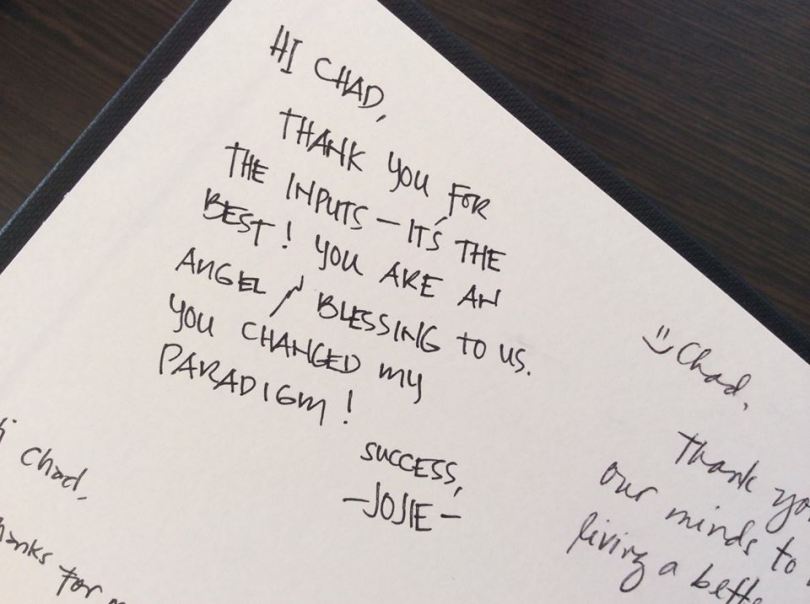 HI CHAD,
THANK YOU FOR
THE INPUTS – IT'S THE
BEST! YOU ARE AN
ANGEL / BLESSING TO US.
YOU CHANGED MY
PARADIGM!
SUCCESS,
–JOJIE–
Chad,
Thank
our minds to
living a
Chad,
for